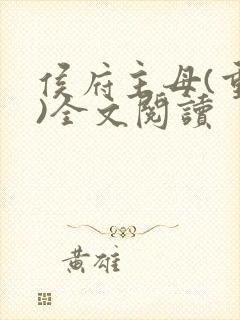 侯府主母(重
)全文閱讀
黃雄